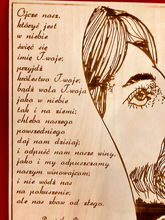 Ojcze nasz,
któryś jest
w niebie
święć się
imię Twoje;
przyjdź
królestwo Twoje;
bądź wola Twoja
jako w niebie
tak i na ziemi;
chleba naszego
powszedniego
daj nam dzisiaj;
i odpuść nam nasze winy,
jako i my odpuszczamy
naszym winowajcom;
i nie wódź nas
na pokuszenie;
ale nas zbaw od złego.